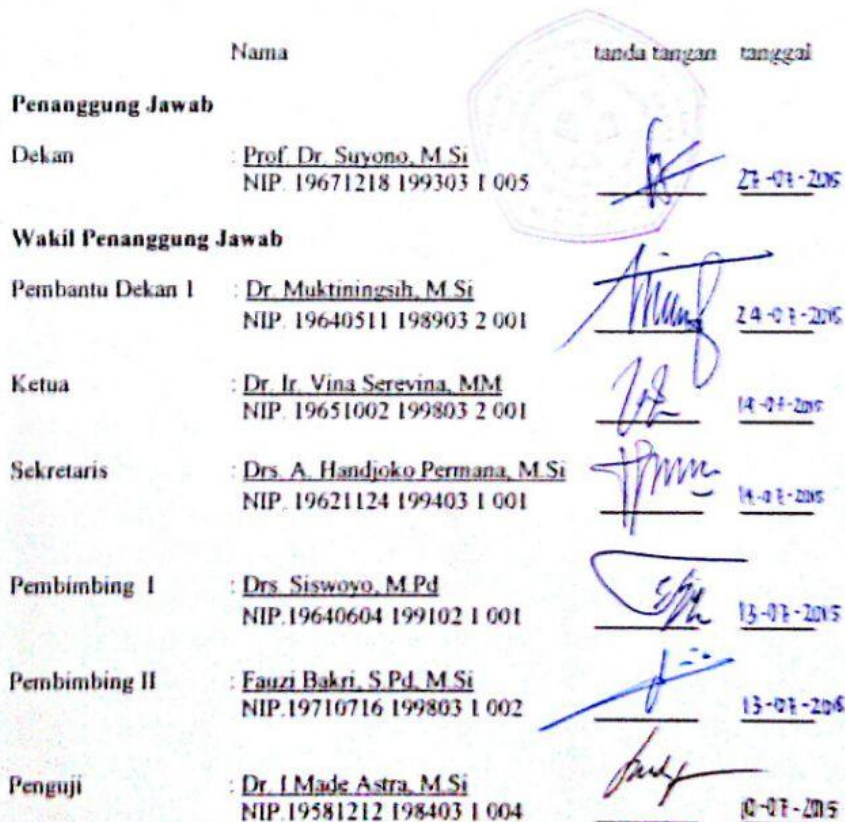 Nama tanda tangan tanggal
Penanggung Jawab
Dekan : Prof. Dr. Suyono, M.Si
NIP. 19671218 199303 1 005 27-07-2015
Wakil Penanggung Jawab
Pembantu Dekan I : Dr. Muktiningsih, M.Si
NIP. 19640511 198903 2 001 24-07-2015
Ketua : Dr. Ir. Vina Serevina, MM
NIP. 19651002 199803 2 001 14-07-2015
Sekretaris : Drs. A. Handjoko Permana, M.Si
NIP. 19621124 199403 1 001 14-07-2015
Pembimbing I : Drs. Siswoyo, M.Pd
NIP.19640604 199102 1 001 13-07-2015
Pembimbing II : Fauzi Bakri, S.Pd, M.Si
NIP.19710716 199803 1 002 13-07-2015
Penguji : Dr. I Made Astra, M.Si
NIP.19581212 198403 1 004 10-07-2015